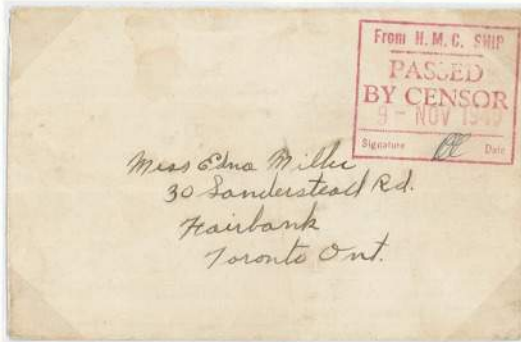 From H. M. C. SHIP
PASSED
BY CENSOR
9 - NOV 1940
Signature Date
Miss Edna Miller
30 Sanderstead Rd.
Fairbank
Toronto Ont.